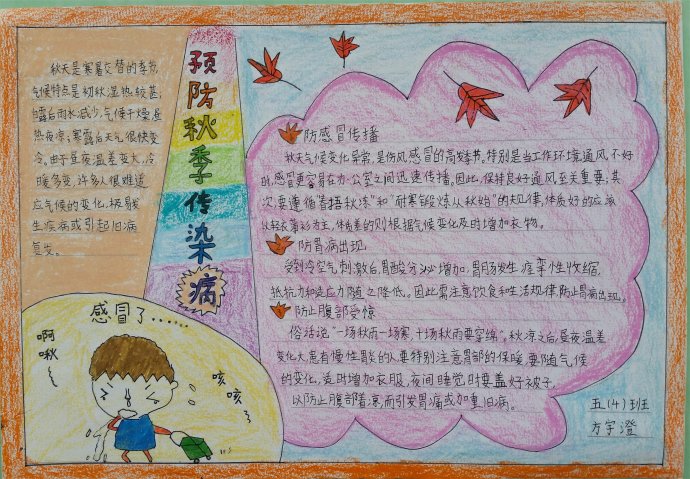 预防秋季传染病
秋天是寒暑交替的季节,
气候特点是初秋湿热较甚,
白露后雨水减少,气候干燥昼
热夜凉;寒露后天气很快变
冷。由于昼夜温差变大,冷
暖多变,许多人很难适
应气候的变化,极易
生疾病或引起旧病
复发。
防感冒传播
秋天气候变化异常,是伤风感冒的高发季节,特别是当工作环境通风不好
时,感冒更容易在办公室之间迅速传播,因此,保持良好通风至关重要;其
次,要遵循“春捂秋冻”和“耐寒锻炼从秋始”的规律,体质好的应
以轻衣薄衫为主,体质差的则根据气候变化及时增加衣物。
防胃病出现
受到冷空气刺激后,胃酸分泌增加,胃肠发生痉挛性收缩,
抵抗力和适应力随之降低。因此需注意饮食和生活规律,防止胃病出现。
防止腹部受惊
俗话说“一场秋雨一场寒,十场秋雨要穿绵”。秋凉之后,昼夜温差
变化大,患有慢性胃炎的人要特别注意胃部的保暖,要随气候
的变化,适时增加衣服,夜间睡觉时要盖好被子,
以防止腹部着凉而引发胃痛或加重旧病。
感冒了......
啊
啾
~
咳
咳
~
五(4)班
方宇澄